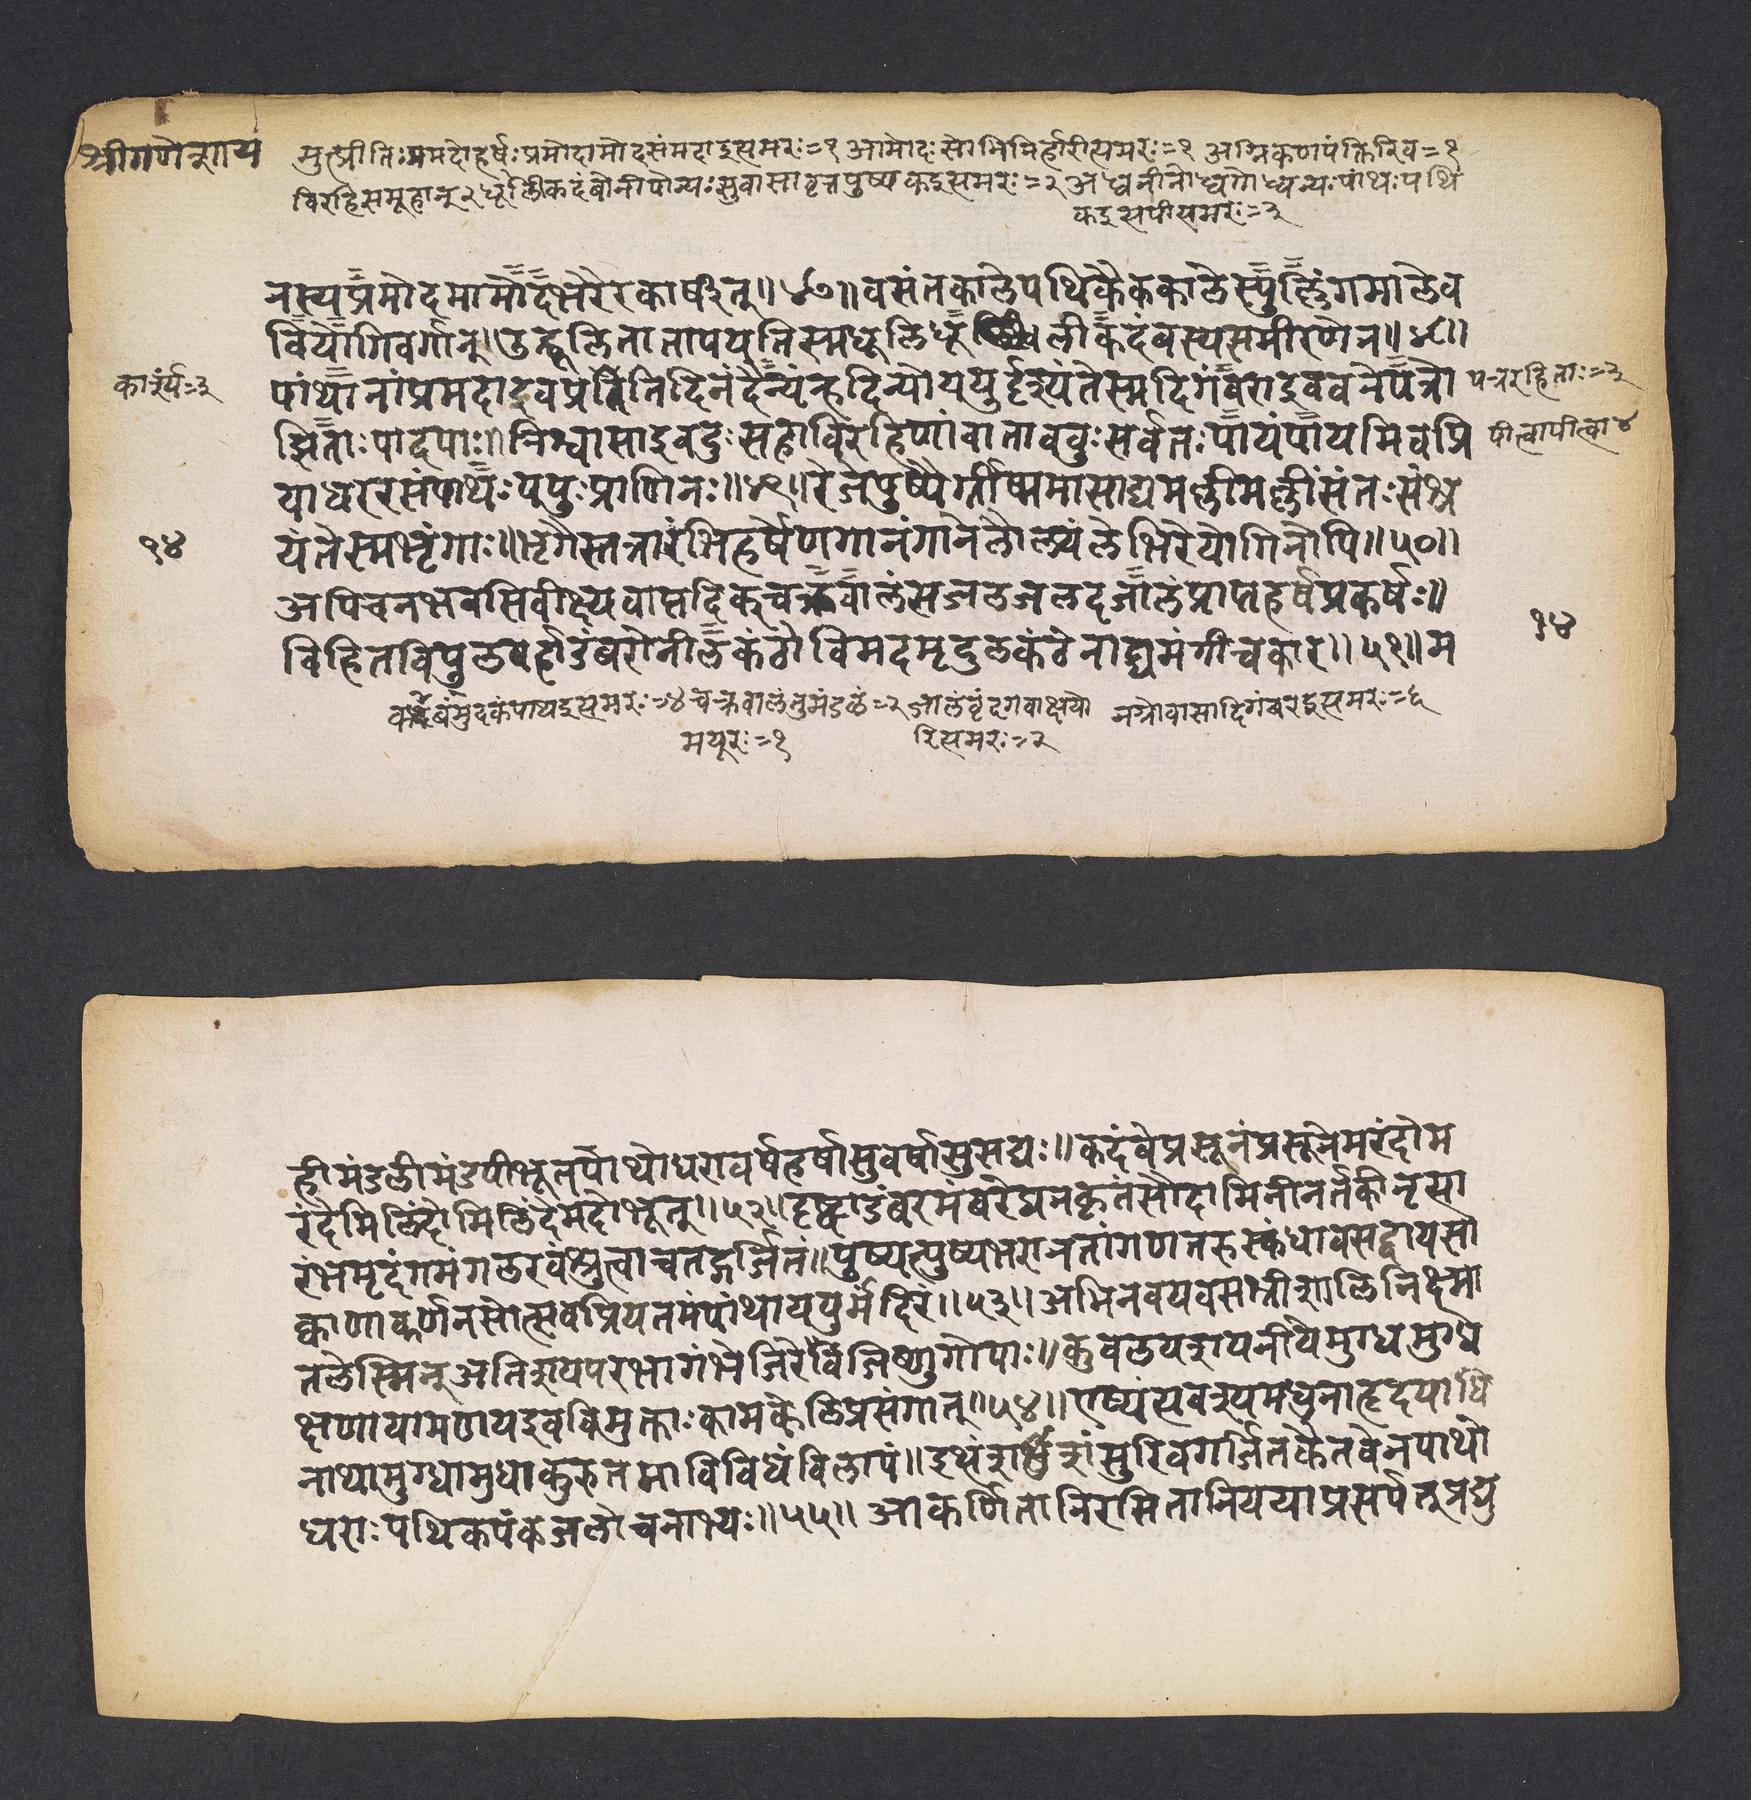 श्रीगणेशाय
मुत्प्रीतिःप्रमदोहर्षःप्रमोदामोदसंमदाइत्यमरः=१ आमोदःसोभिनिर्हारीत्यमरः=१ अग्निकणपंक्तिरिव=१
विरहिसमूहान्२ धूलिकदंबोनीपोन्यःसुवासावृत्तपुष्पकइत्यमरः=२ अध्वनीनोध्वगोध्वन्यःपांथःपथि
कइत्यपीत्यमरः=३
नस्यप्रमोदमामोदभरैरकार्षीत्॥४७॥वसंतकालेपथिकैककालेस्फुलिंगमालेव
वियोगिवर्गान्।उद्धूलितातापयतिस्मधूलिर्धूलीकदंबस्यसमीरणेन॥४८॥
पांथानांप्रमदाइवप्रतिदिनंदैन्यंह्रदिन्योययुर्दृश्यंतेस्मदिगंबराइववनेपत्रो
झिताःपादपाः॥निश्वासाइवदुःसहाविरहिणांवाताववुःसर्वतःपायंपायमिवप्रि
याधररसंपाथःपपुःप्राणिनः॥४९॥रेजेपुष्पैर्ग्रीष्ममासाद्यमल्लीमल्लींसंतःसंश्र
यंतेस्मभृंगाः॥भृंगैस्तत्रारंभिहर्षेणगानंगानेलौल्यंलेभिरेयोगिनोपि॥५०॥
अपिचनभसिवीक्ष्यवाप्तदिक्चक्रवालंसजलजलदजालंप्राप्तहर्षप्रकर्षः॥
विहितविपुलबर्हाडंबरोनीलकंठोविमदमृदुलकंठंनाद्यमंगीचकार॥५१॥म
कार्श्यं=३
पत्ररहिताः=३
पीत्वापीत्वा४
१४
१४
कबंधमुदकंपाथइत्यमरः=४ चक्रवालंतुमंडलं=२ जालंवृंदगवाक्षयो
नग्नोवासादिगंबरइत्यमरः=६
मयूरः=१
रित्यमरः=२
हीमंडलीमंडपीभूतपाथोधरावर्षहर्षासुवर्षासुसद्यः॥कदंबेप्रसूनंप्रसूनेमरंदोम
रंदेमिलिंदोमिलिंदेमदोभूत्॥५२॥दृष्ट्वाडंबरमंबरेघनकृतंसौदामिनीनर्तकीनृत्या
रंभमृदंगमंगलरवंश्रुत्वाचतद्गर्जितं॥पुष्यत्पुष्पभरानतांगणतरुस्कंधावसद्वायसो
क्वाणाकर्णनसोत्सवप्रियतमंपांथाययुर्मंदिरं॥५३॥अभिनवयवसश्रीशालिनिक्ष्मा
तलेस्मिन्अतिशयपरभागंभेजिरेजिष्णुगोपाः॥कुवलयशयनीयेमुग्धमुग्धे
क्षणायामणयइवविमुक्ताःकामकेलिप्रसंगात्॥५४॥एष्यंत्यवश्यमधुनाहृदयाधि
नाथामुग्धामुधाकुरुतमाविविधंविलापं॥इत्थंशशंसुरिवगर्जितकैतवेनपाथो
धराःपथिकपंकजलोचनाभ्यः॥५५॥ आकर्णितानिरसितानिययाप्रसर्पत्प्रद्यु